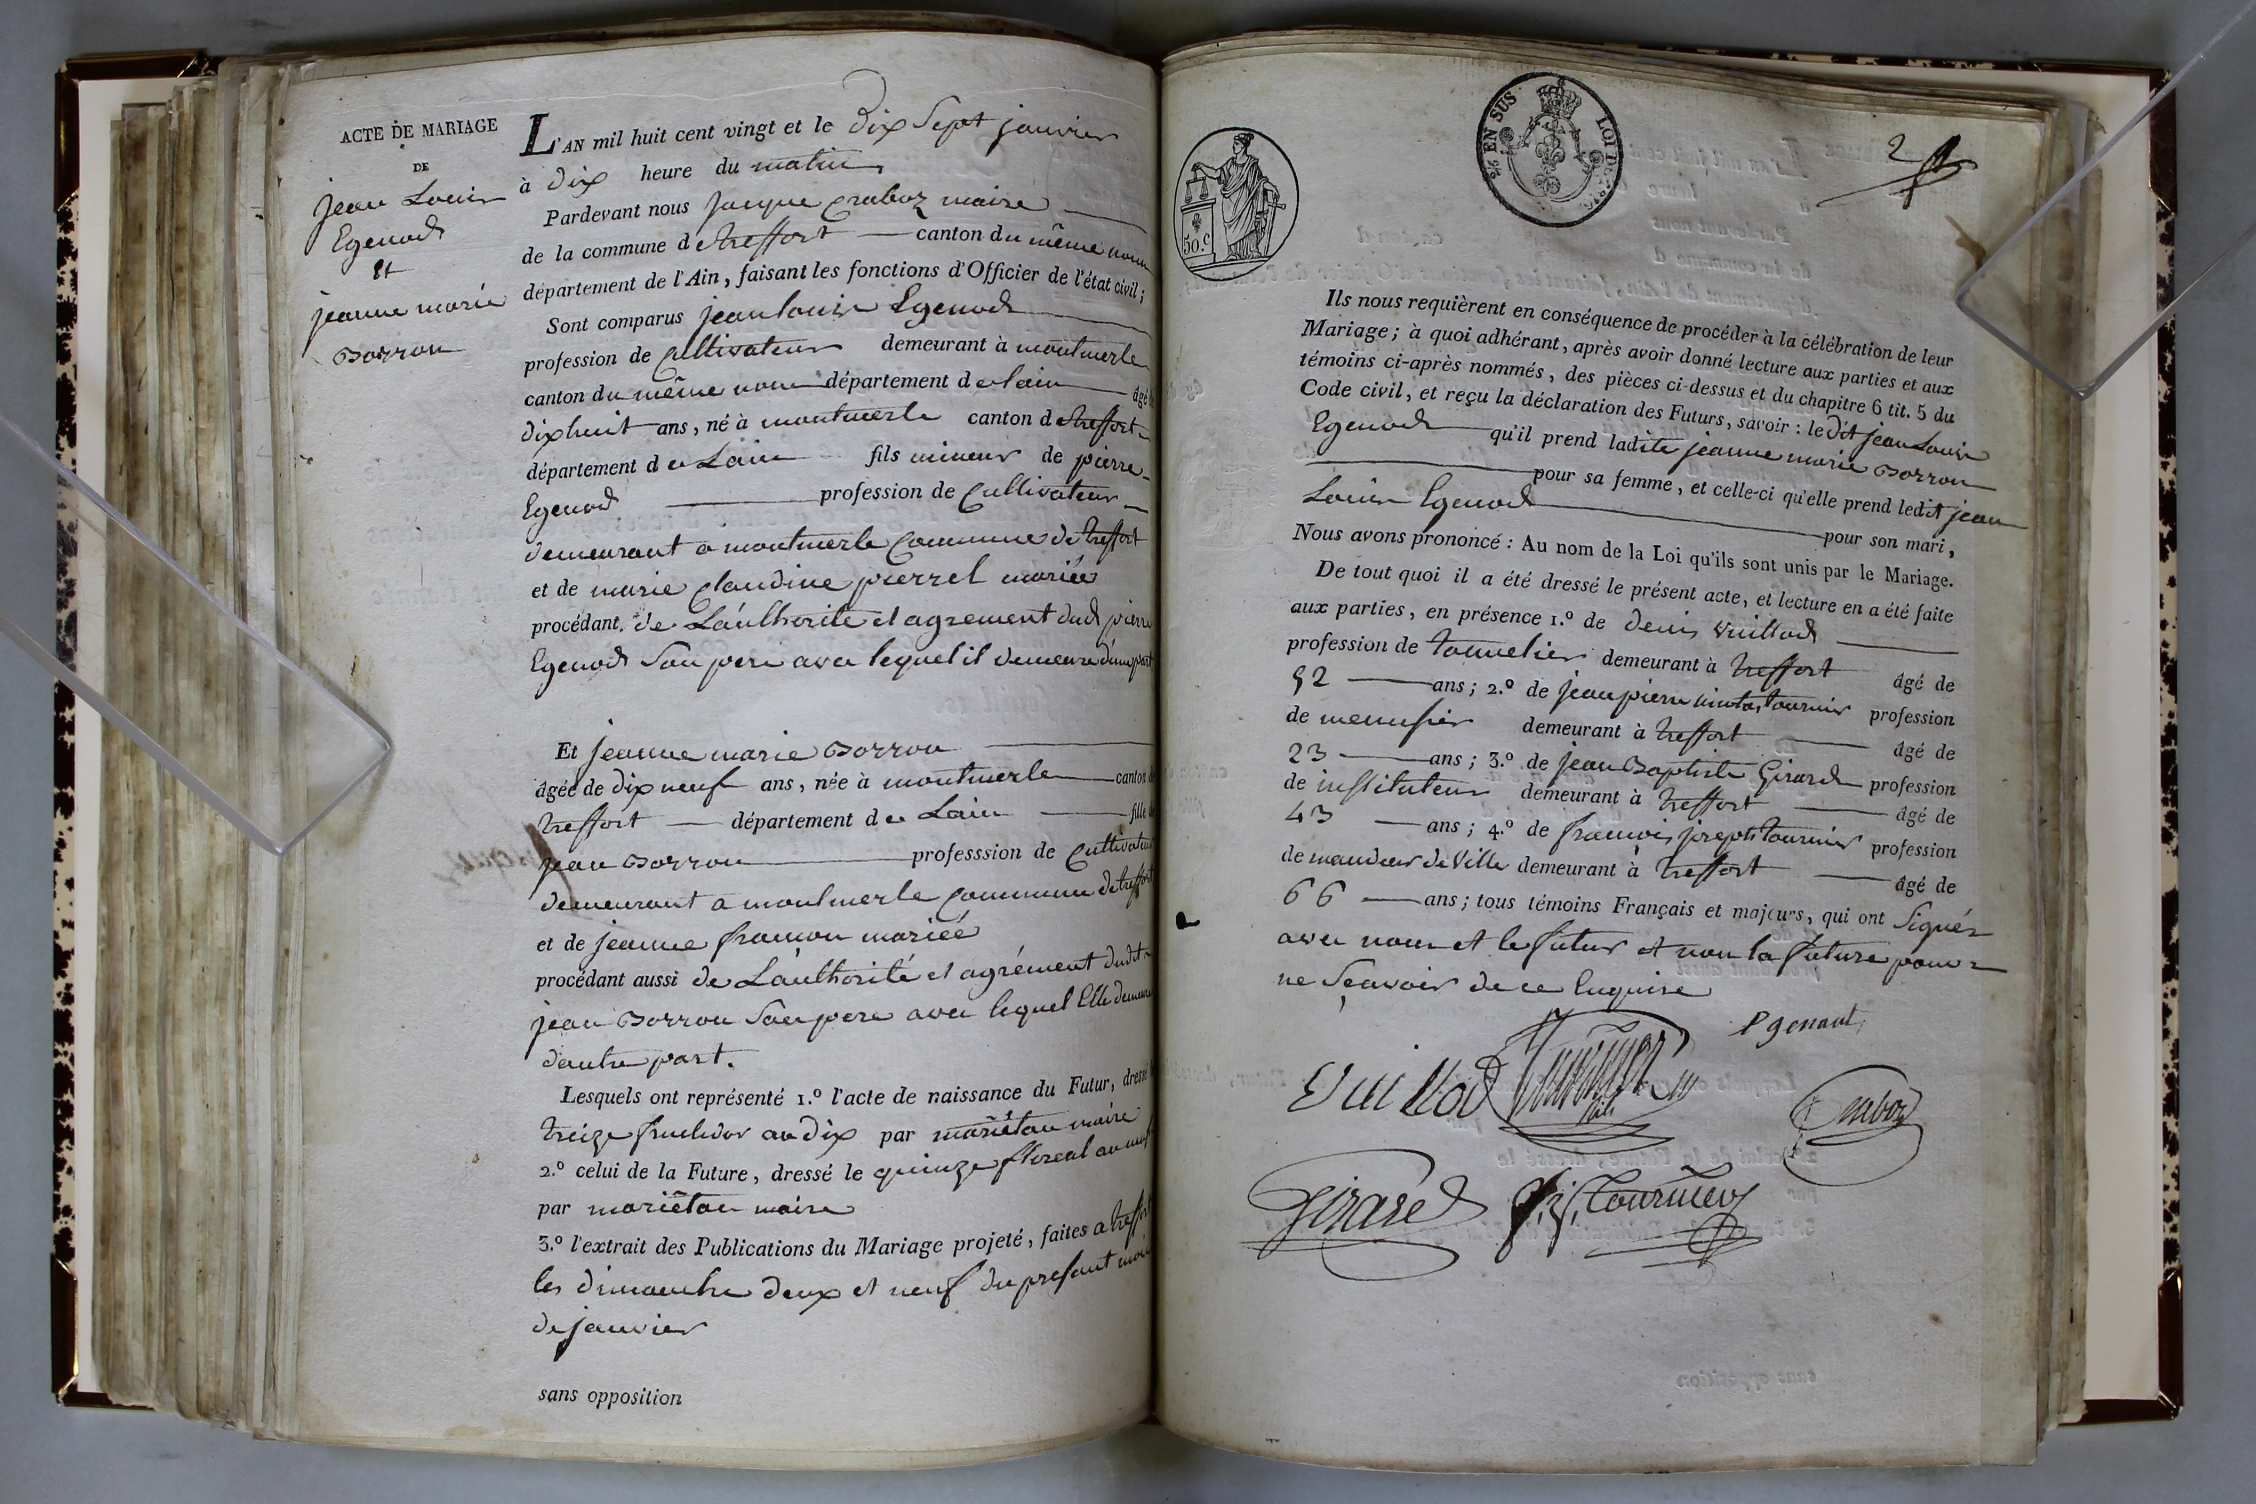 ACTE DE MARIAGE
DE
jean Louis
Egenod
et
jeanne marie
Borron
L'AN mil huit cent vingt et le dix Sept janvier
à dix heure du matin
Pardevant nous jacque Craboz maire
de la commune de treffort canton du même nom
département de l'Ain, faisant les fonctions d'Officier de l'état civil;
Sont comparus jean louis Egenod
profession de Cultivateur demeurant à montmerle
canton du même nom département de lain âgé de
dixhuit ans, né à montmerle canton de treffort
département de Lain fils mineur de pierre
Egenod profession de Cultivateur
demeurant a montmerle Commune de treffort
et de marie claudine pierrel mariée
procédant de L'authorité et agrement dud pierre
Egenod Son pere avec lequel il demeure d'une part
Et jeanne marie Borron
âgée de dix neuf ans, née à montmerle canton de
treffort département de Lain fille de
jean Borron professsion de Cultivateur
demeurant a montmerle Commune de treffort
et de jeanne framon mariée
procédant aussi de L'authorité et agrément dudit
jean Borron Son pere avec lequel Elle demeure
d'autre part.
Lesquels ont représenté 1.º l'acte de naissance du Futur, dressé le
treize fructidor an dix par mariétan maire
2.º celui de la Future, dressé le quinze floreal an neuf
par mariétan maire
3.º l'extrait des Publications du Mariage projeté, faites a treffort
les dimanche deux et neuf du present mois
de janvier
sans opposition
50.c
EN SUS LOI DE
2
Ils nous requièrent en conséquence de procéder à la célébration de leur
Mariage; à quoi adhérant, après avoir donné lecture aux parties et aux
témoins ci-après nommés, des pièces ci-dessus et du chapitre 6 tit. 5 du
Code civil, et reçu la déclaration des Futurs, savoir: le dit jean Louis
Egenod qu'il prend ladite jeanne marie Borron
pour sa femme, et celle-ci qu'elle prend ledit jean
Louis Egenod pour son mari,
Nous avons prononcé: Au nom de la Loi qu'ils sont unis par le Mariage.
De tout quoi il a été dressé le présent acte, et lecture en a été faite
aux parties, en présence 1.º de denis Vuillod
profession de tonnelier demeurant à treffort âgé de
52 ans; 2.º de jean pierre tournier profession
de menusier demeurant à treffort âgé de
23 ans; 3.º de jean Baptiste Girard profession
de instituteur demeurant à treffort âgé de
43 ans; 4.º de francois joseph tournier profession
de mandeur de Ville demeurant à treffort âgé de
66 ans; tous témoins Français et majeurs, qui ont Signés
avec nous et le futur et non la future pour
ne Sçavoir de ce Enquise
Egenaut
Vuillod Tournier fils Craboz
Girard f. j. Tournier